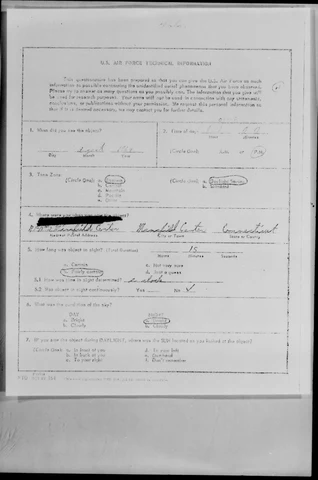 U.S. AIR FORCE TECHNICAL INFORMATION
This questionnaire has been prepared so that you can give the U.S. Air Force as much
information as possible concerning the unidentified aerial phenomenon that you have observed.
Please try to answer as many questions as you possibly can. The information that you give will
be used for research purposes. Your name will not be used in connection with any statements,
conclusions, or publications without your permission. We request this personal information so
that if it is deemed necessary, we may contact you for further details.
1. When did you see the object?
Day Month Year
2. Time of day:
Hour Minutes
(Circle One): A.M. or P.M.
3. Time Zone:
(Circle One): a. Eastern
b. Central
c. Mountain
d. Pacific
e. Other
(Circle One): a. Daylight Saving
b. Standard
4. Where were you when you saw the object?
Mansfield Center Mansfield Center Connecticut
Nearest Postal Address City or Town State or County
5. How long was object in sight? (Total Duration) 15
Hours Minutes Seconds
a. Certain
b. Fairly certain
c. Not very sure
d. Just a guess
5.1 How was time in sight determined? a clock
5.2 Was object in sight continuously? Yes No ✓
6. What was the condition of the sky?
DAY
a. Bright
b. Cloudy
NIGHT
a. Bright
b. Cloudy
7. IF you saw the object during DAYLIGHT, where was the SUN located as you looked at the object?
(Circle One): a. In front of you
b. In back of you
c. To your right
d. To your left
e. Overhead
f. Don't remember
FORM